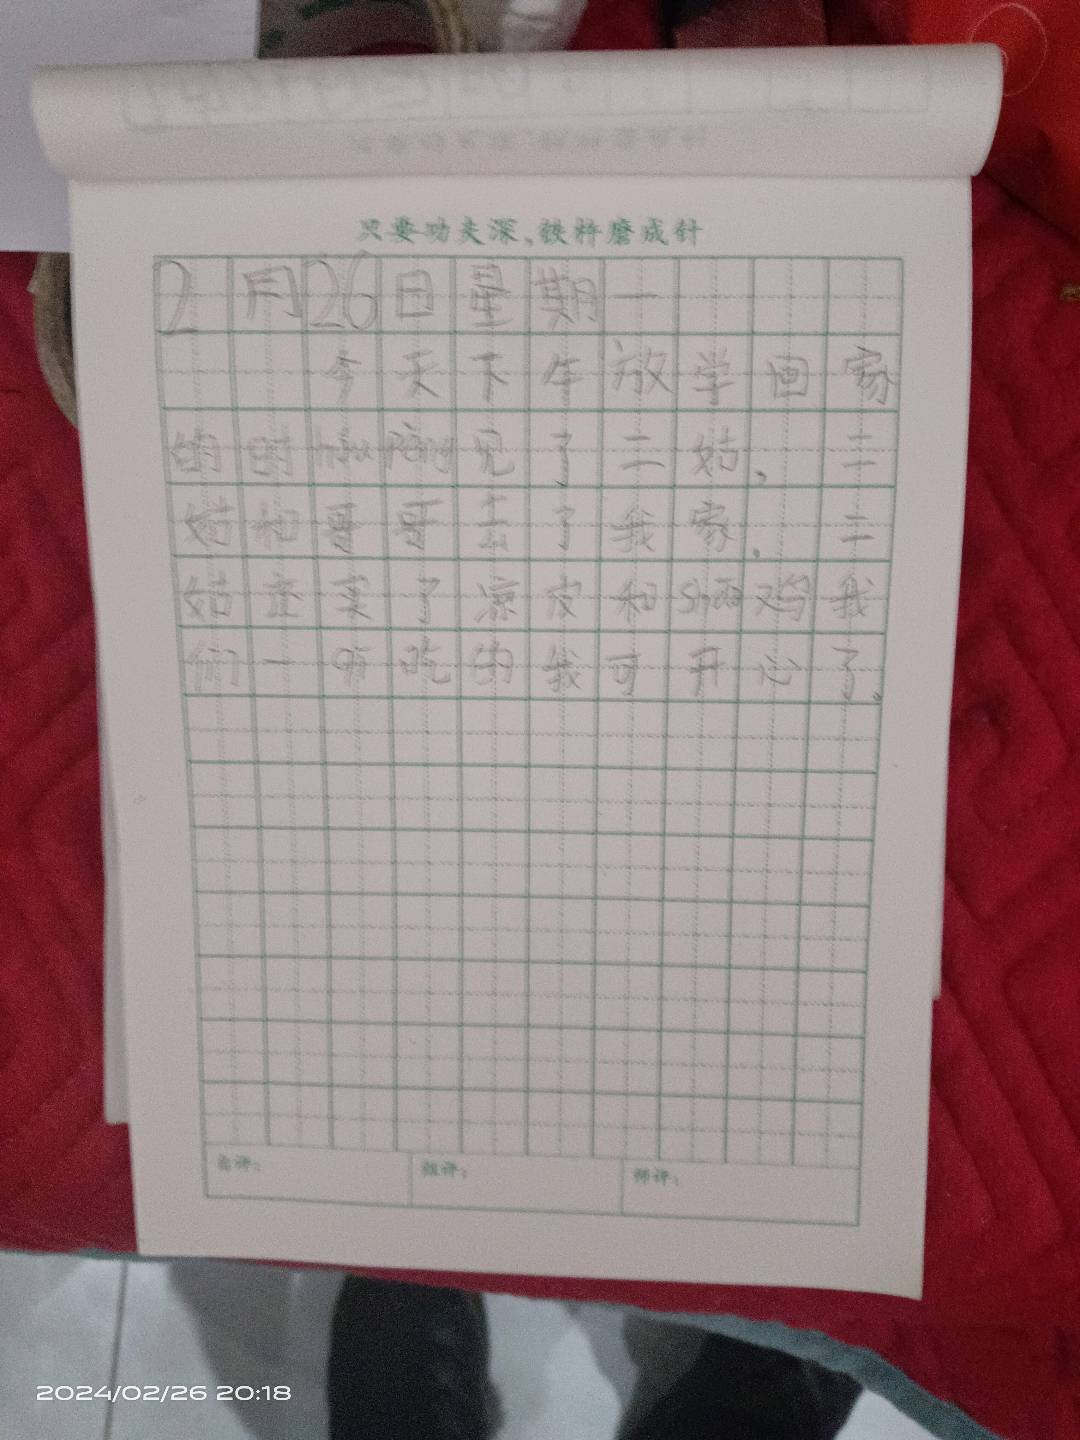 只要功夫深,铁杵磨成针
2月26日星期一
今天下午放学回家
的时候 见了二姑,二
姑和哥哥去了我家.二
姑还买了凉皮和 鸡我
们一 吃的我可开心了.
自评:
组评:
师评:
2024/02/26 20:18